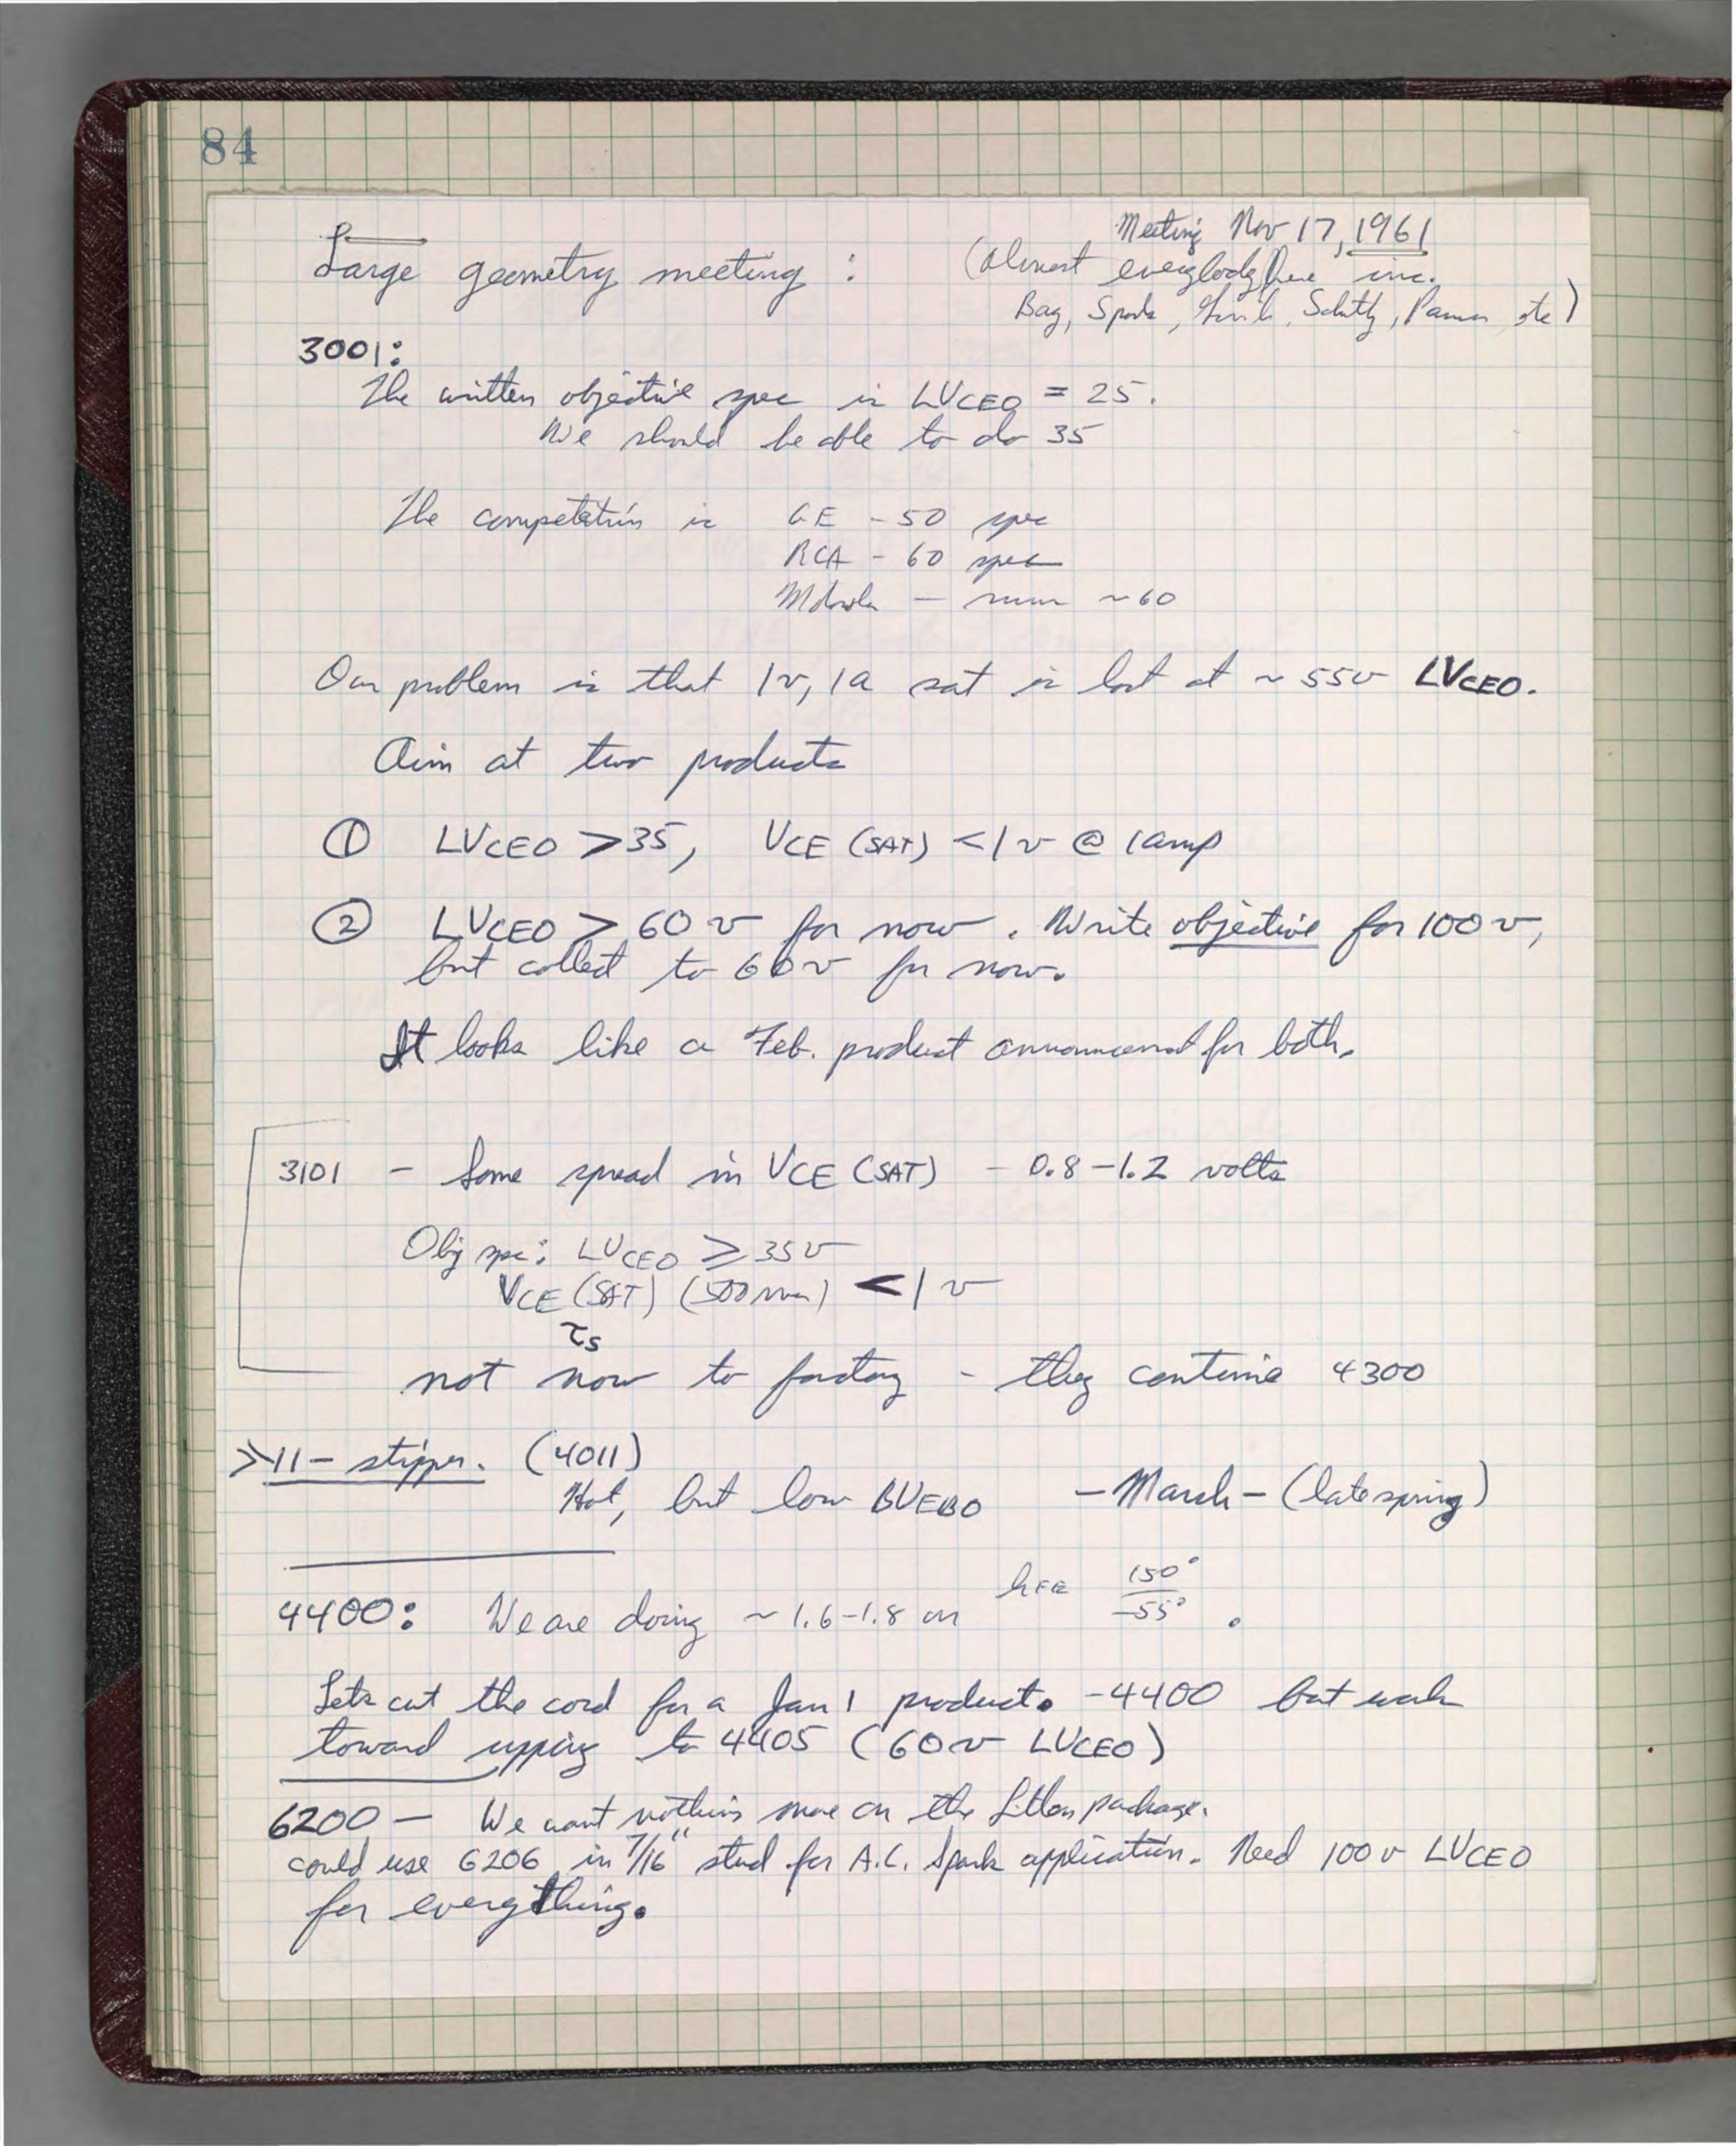 84
Meeting Nov 17, 1961
Large geometry meeting : (Almost everybody here inc.
Bay, Spork, , , , etc)
3001:
The written objective spec is LVCEO = 25.
We should be able to do 35
The competition is GE - 50 spec
RCA - 60 spec
Motorola — ~60
Our problem is that 1v, 1a sat is lost at ~ 55v LVCEO.
Aim at two products
① LVCEO > 35, VCE (SAT) < 1 v @ 1amp
② LVCEO > 60 v for now. Write objective for 100 v,
but collect to 60 v for now.
It looks like a Feb. product announcement for both.
3101 - Some spread in VCE (SAT) - 0.8-1.2 volts
Obj spec: LVCEO ≥ 35 v
VCE (SAT) (500 ma) < 1 v
τs
not now to factory - they continue 4300
>11- stripper. (4011)
Hot, but low BVEBO - March - (late spring)
4400: We are doing ~ 1.6-1.8 on hFE 150°/-55°.
Lets cut the cord for a Jan 1 product. - 4400 but work
toward upping to 4405 (60 v LVCEO)
6200 — We want nothing more on the Litton package.
could use 6206 in 7/16" stud for A.C. Spark application. Need 100 v LVCEO
for everything.